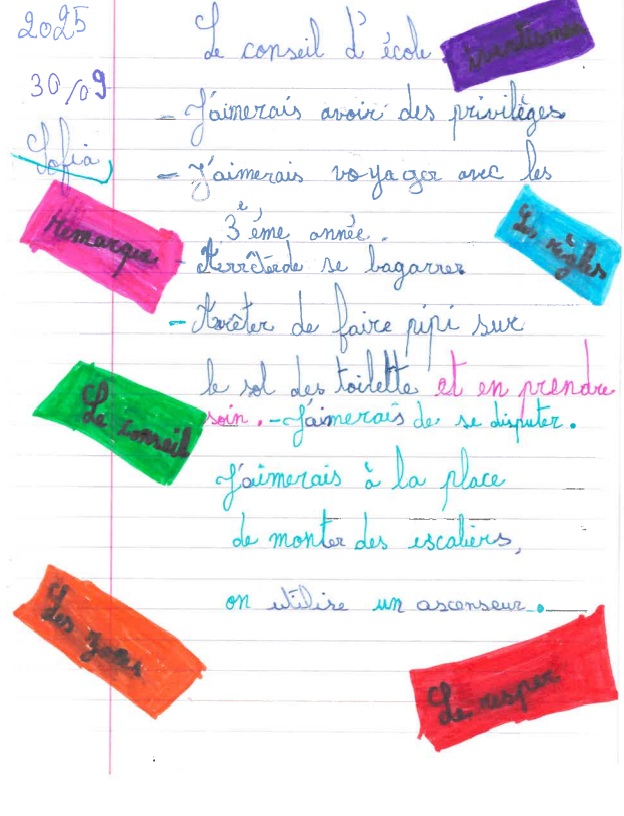 2025
Le conseil d'école
30/09
- J'aimerais avoir des privilèges
Sofia
- J'aimerais voyager avec les
3ème année.
Remarque
Les règles
- Arrêtede se bagarrer
- Arrêter de faire pipi sur
le sol des toilette et en prendre
soin. - J'aimerais de se disputer.
Le conseil
J'aimerais à la place
de monter des escaliers,
on utilise un ascenseur.
Les
Le resper